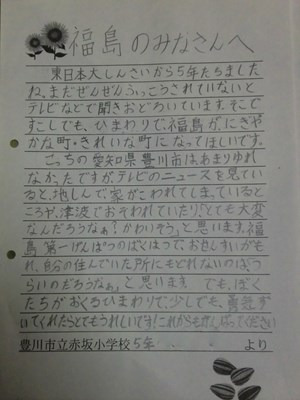 福島のみなさんへ
東日本大しんさいから5年たちました
ね、まだぜんぜんふっこうされていないと
テレビなどで聞きおどろいています。そこで
すこしでも、ひまわりで、福島が、にぎや
かな町・きれいな町になってほしいです。
こっちの愛知県豊川市は、あまりゆれ
なかったですが、テレビのニュースを見てい
ると、地しんで、家がこわれてしまっていると
ころや、津波でおそわれていたり、「とても大変
なんだろうなぁ?かわいそう」と思います。福
島第一げんぱつのばくはつで、おせんすいがも
れ、自分の住んでいた所にもどれないのは、「つ
らいのだろうなぁ。」と思います でも、ぼく
たちがおくるひまわりで、少しでも、勇気づ
いてくれたらとてもうれしいです!これからもがんばってください
豊川市立赤坂小学校5年 より